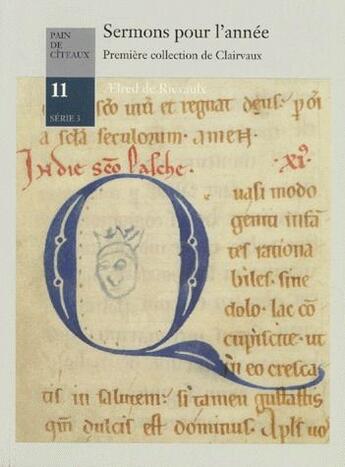 PAIN
DE
CÎTEAUX
11
SÉRIE 3
Sermons pour l'année
Première collection de Clairvaux
Ælred de Rievaulx
sc̄o uiuit et regnat deus. p oīa
a scl̄a seculorum. amen.
In die sc̄o pasche. .xi.
Quasi modo
geniti infā
tes rationa
biles. sine
dolo. lac cō
cupiscite. ut
in eo cresca
tis in salutem: si tamen gustastis
qm̄ dulcis est dominus. Apl̄s uo